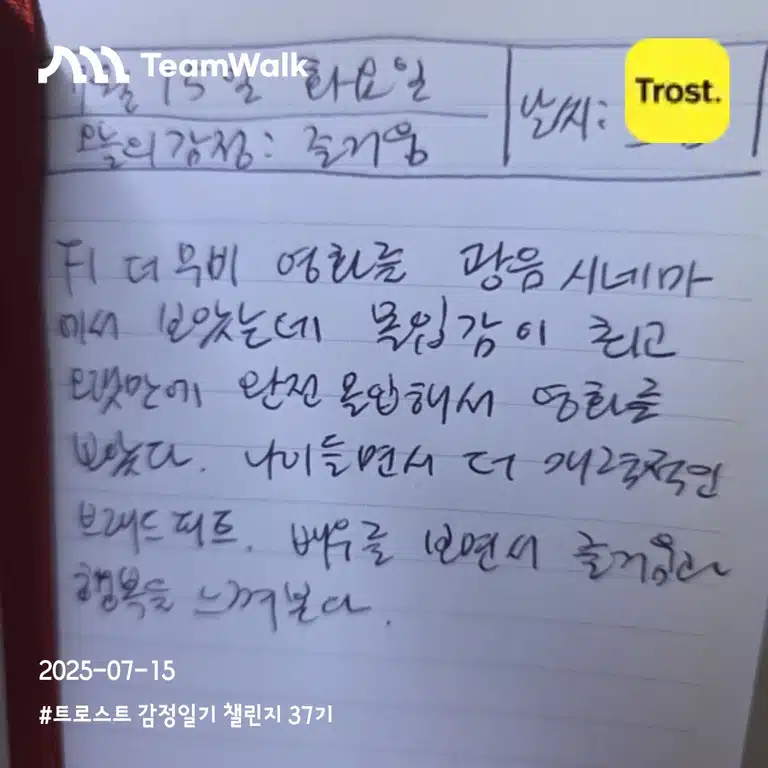 TeamWalk
7월 15일 화요일
Trost.
날씨:
오늘의감정: 즐거움
F1 더무비 영화를 광음시네마
에서 보았는데 몰입감이 최고
오랫만에 완전몰입해서 영화를
보았다. 나이들면서 더 매력적인
브래드피트. 배우를 보면서 즐거움과
행복을 느껴본다.
2025-07-15
#트로스트 감정일기 챌린지 37기